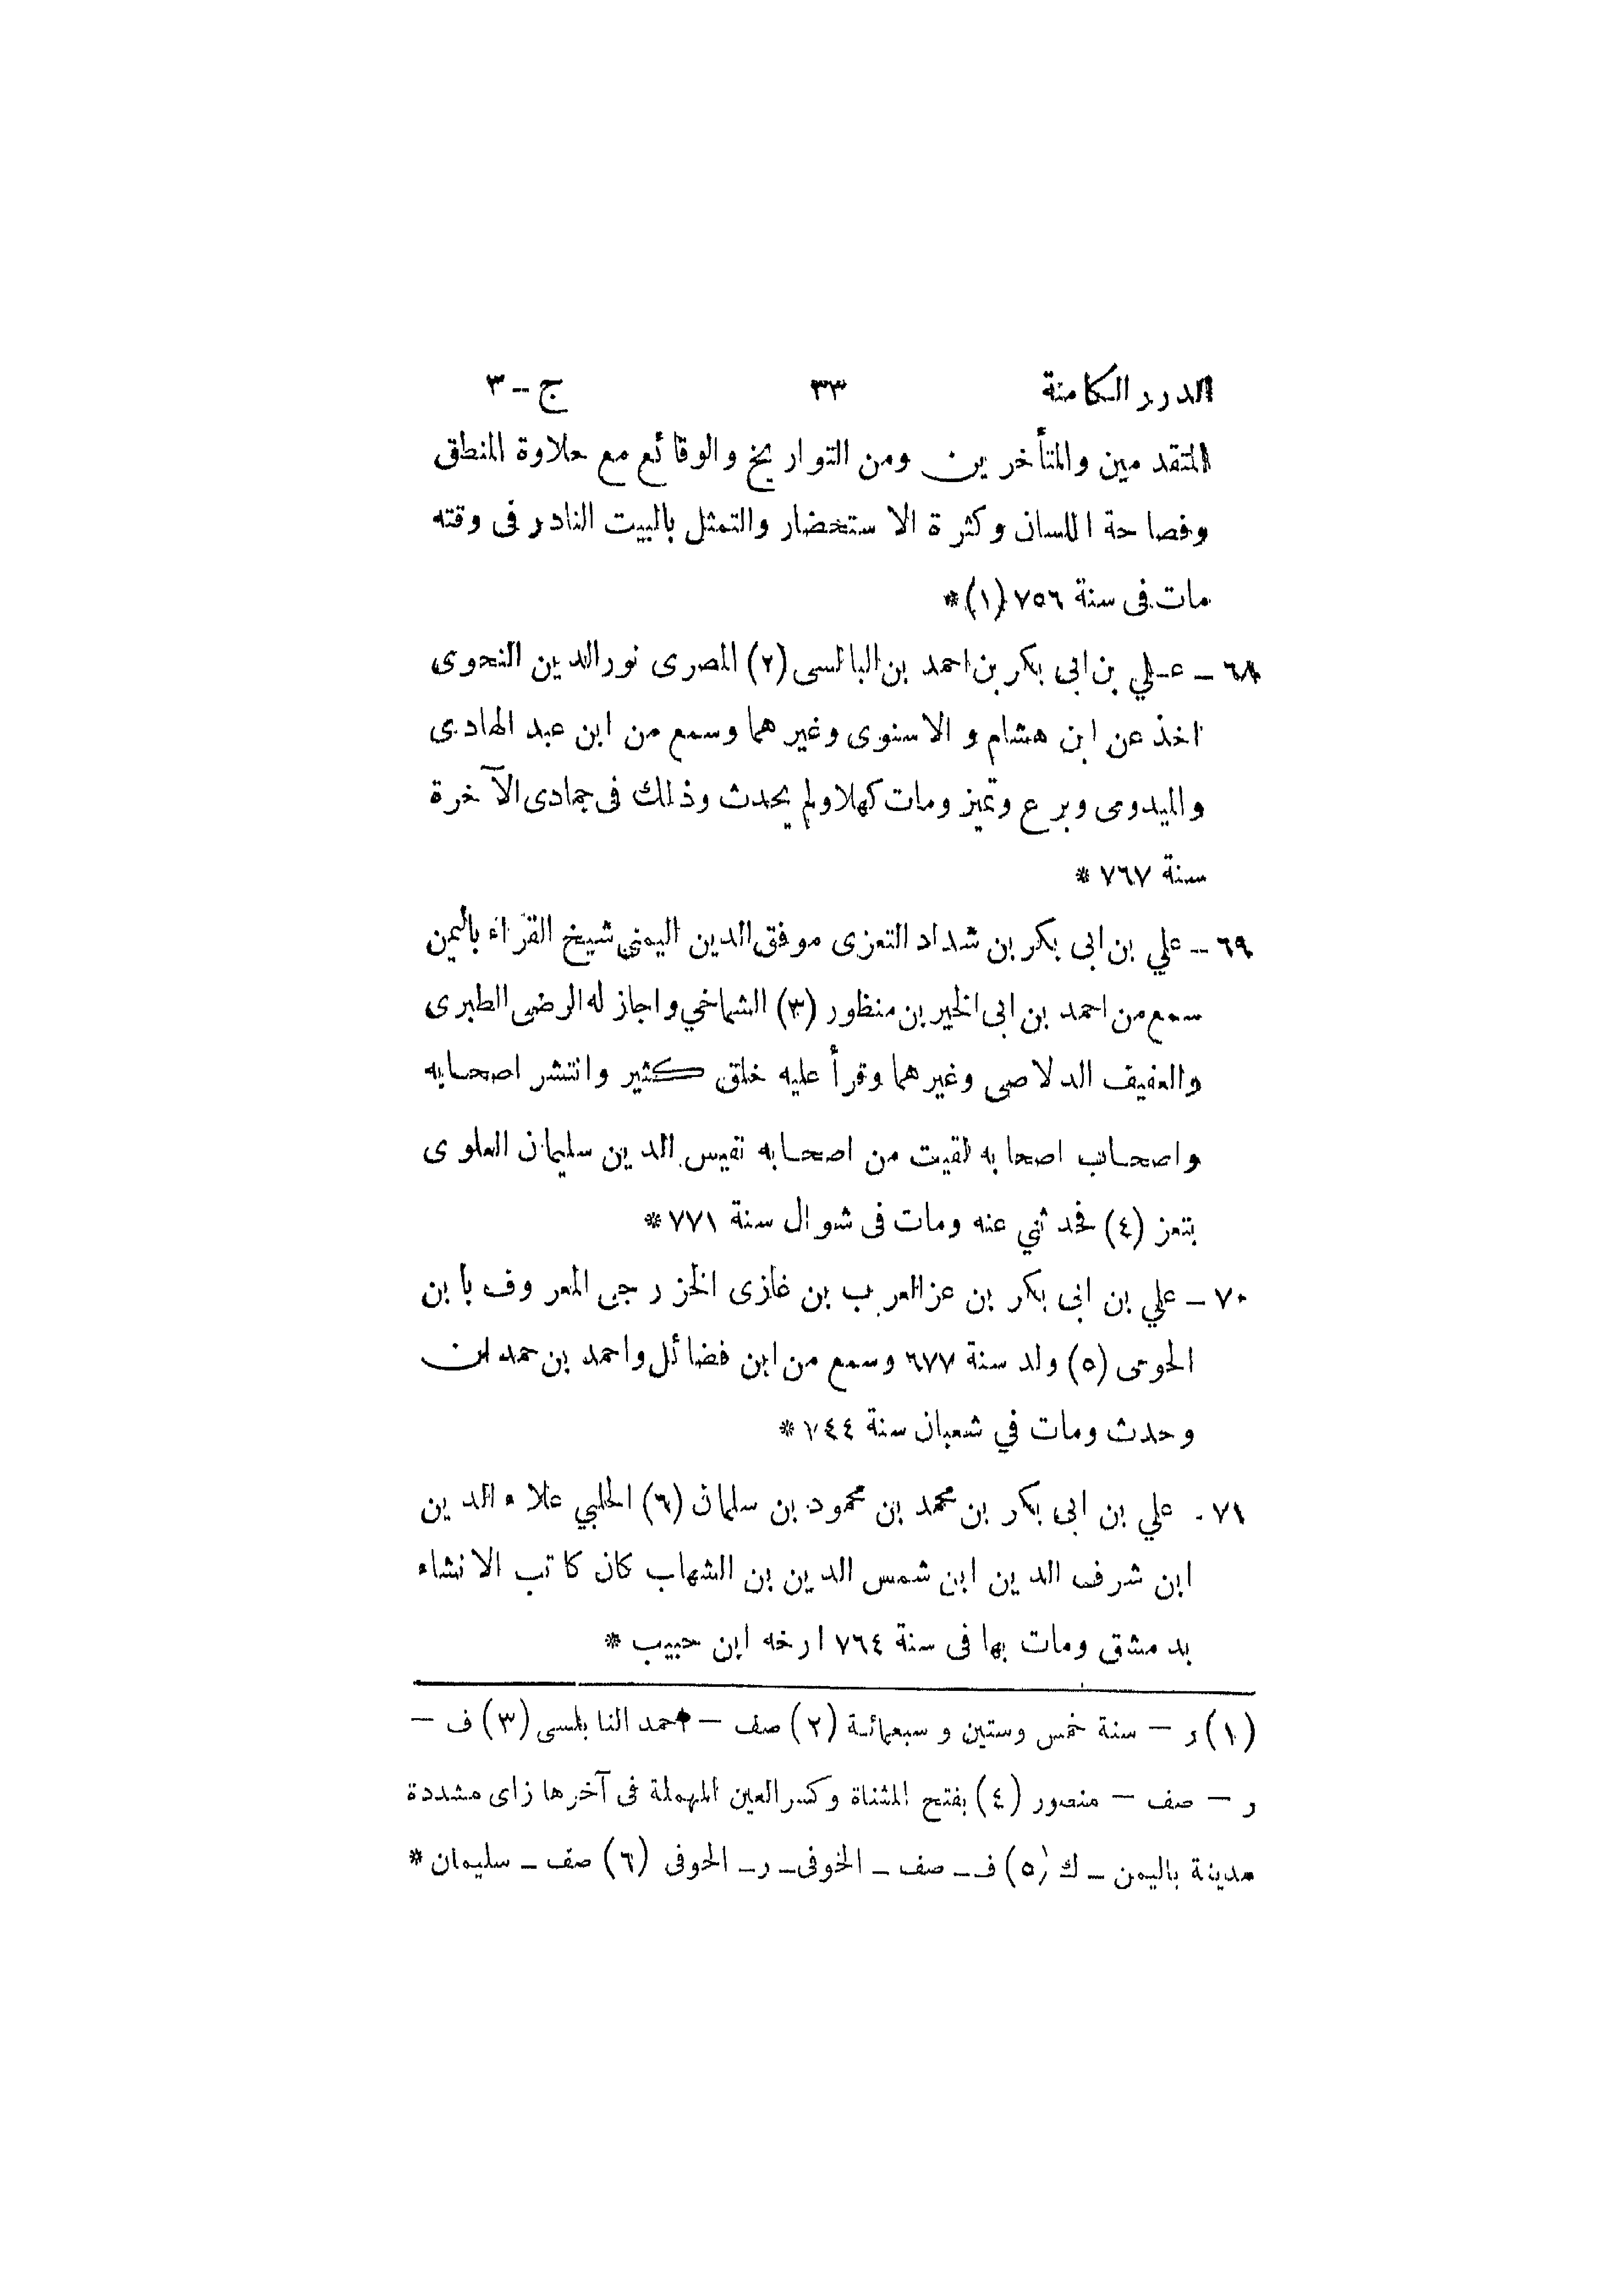 الدرر الكامنة ٣٣ ج-٣
المتقدمين والمتأخرين ومن التواريخ والوقائع مع حلاوة المنطق
وفصاحة اللسان وكثرة الاستحضار والتمثل بالبيت النادر فى وقته
مات فى سنة ٧٥٦ (١)*
٦٨ - علي بن ابى بكر بن احمد بن البالسى (٢) المصرى نور الدين النحوى
اخذ عن ابن هشام والاسنوى وغيرهما وسمع من ابن عبد الهادى
والميدومى وبرع وتميز ومات كهلا ولم يحدث وذلك فى جمادى الآخرة
سنة ٧٦٧ *
٦٩ - علي بن ابى بكر بن شداد التعزى موفق الدين اليمني شيخ القراء باليمن
سمع من احمد بن ابى الخير بن منظور (٣) الشماخي واجاز له الرضى الطبرى
والعفيف الدلاصى وغيرهما وقرأ عليه خلق كثير وانتشر اصحابه
واصحاب اصحابه لقيت من اصحابه نفيس الدين سليمان العلوى
بتعز (٤) فحدثني عنه ومات فى شوال سنة ٧٧١ *
٧٠ - علي بن ابى بكر بن عز العرب بن غازى الخزرجى المعروف بابن
الحومى (٥) ولد سنة ٦٧٧ وسمع من ابن فضائل واحمد بن حمدان
وحدث ومات في شعبان سنة ٧٤٤ *
٧١ - علي بن ابى بكر بن محمد بن محمود بن سلمان (٦) الحلبي علاء الدين
ابن شرف الدين ابن شمس الدين بن الشهاب كان كاتب الانشاء
بدمشق ومات بها فى سنة ٧٦٤ ارخه ابن حبيب *
(١) ر - سنة خمس وستين وسبعمائة (٢) صف - احمد النابلسى (٣) ف -
ر - صف - منصور (٤) بفتح المثناة وكسر العين المهملة فى آخرها زاى مشددة
مدينة باليمن - ك (٥) ف - صف - الخوفى - ر - الحوفى (٦) صف - سليمان *